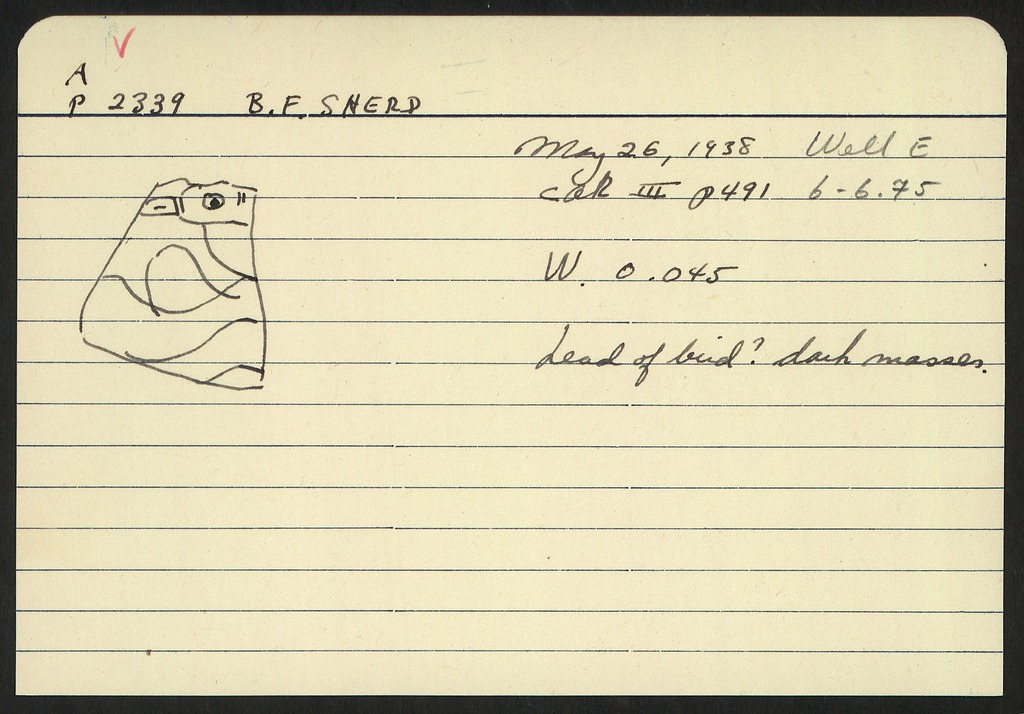 A
P 2339 B.F. SHERD
May 26, 1938 Well E
CdR III p491 6-6.75
W. 0.045
Head of bird? dark masses.